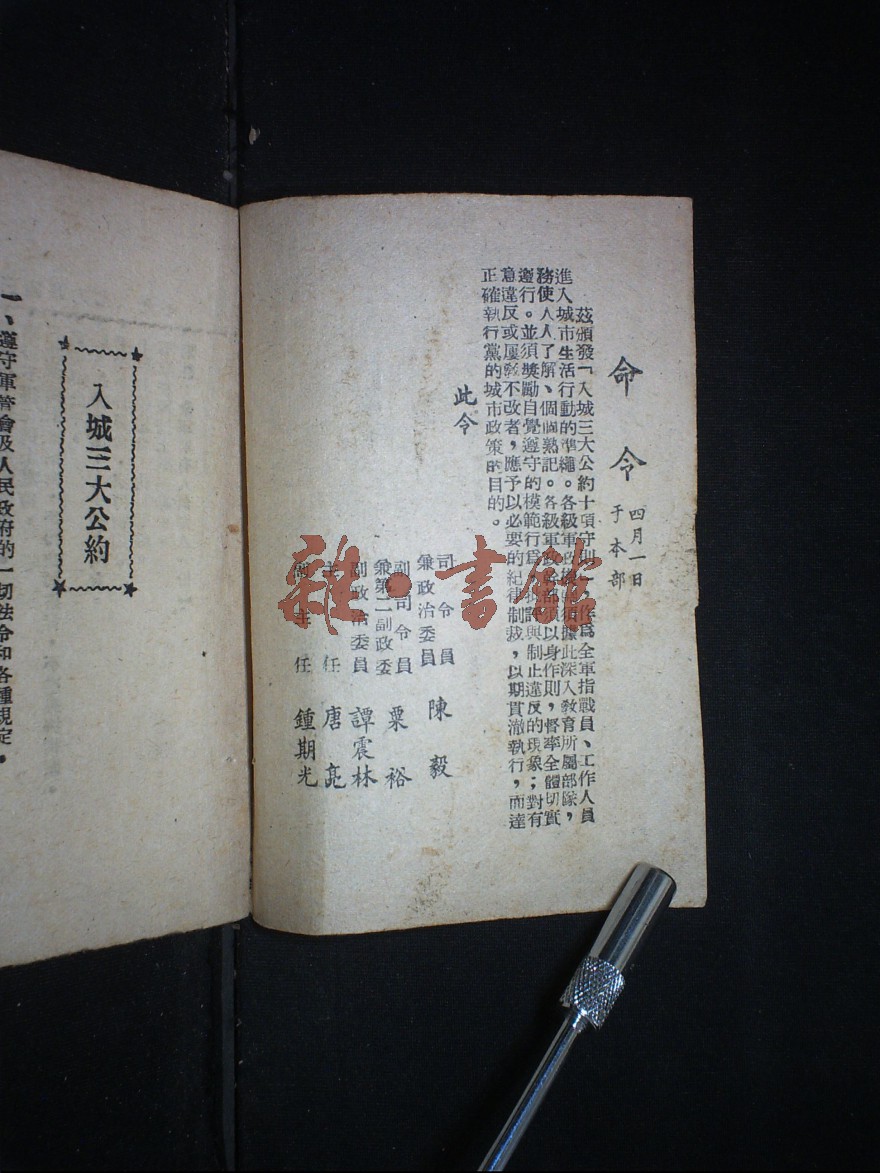 命令
四月一日
于本部
茲頒發「入城三大公約十項守則」作爲全軍指戰員、工作人員
進入城市生活行動的準繩。各級軍政機 須據此深入敎育所屬部隊,
務使人人了解、個個熟記。各級軍政 部須以身作則,督率全體切實
遵行。並須獎勵自覺遵守的模範行爲, 評與制止違反的現象;對有
意違反或屢敎不改者,應予以必要的紀律制裁,以期貫澈執行,而達
正確執行黨的城市政策的目的。
此令
司令員
兼政治委員 陳毅
副司令員
兼第二副政委 粟裕
副政治委員 譚震林
主任 唐亮
副主任 鍾期光
入城三大公約
一、遵守軍管會及人民政府的一切法令和各種規定。
雜·書館